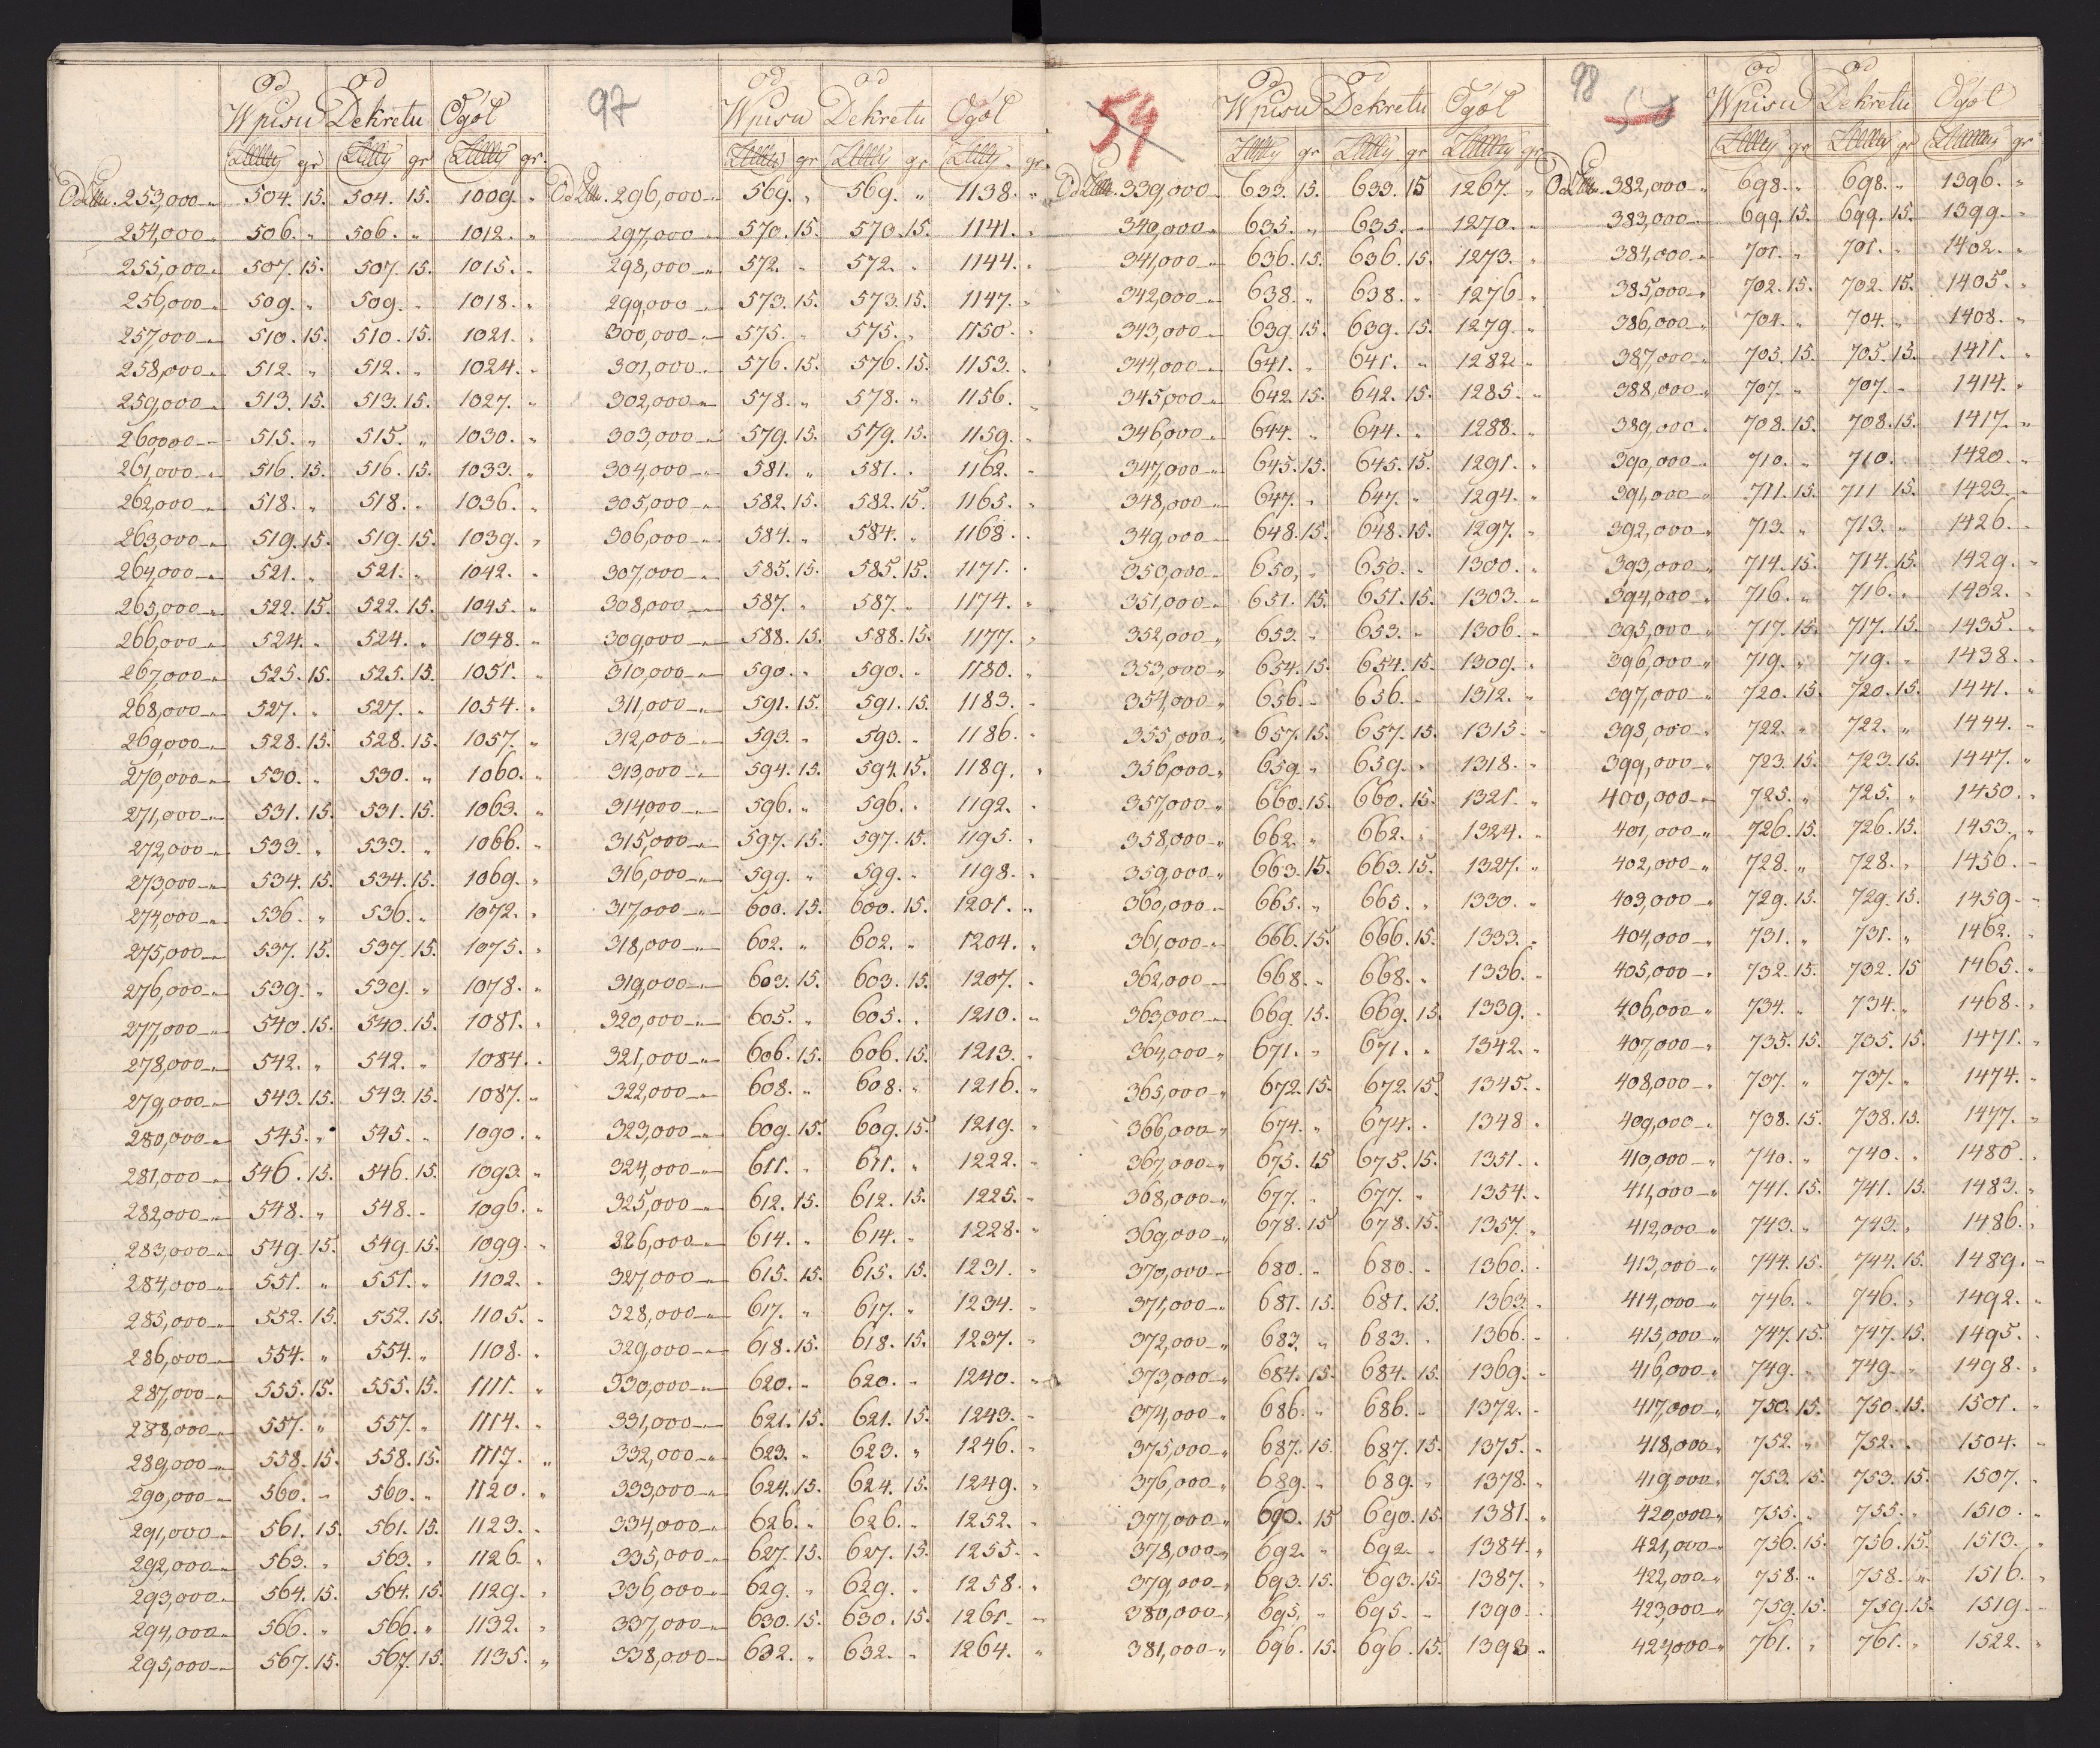 97
Od Od
Wpisu Dekretu Ogół
Złłty gr Złłty gr Złłty gr.
Od Złłt. 253,000 504. 15. 504. 15. 1009. "
254,000 506. " 506. " 1012. "
255,000 507. 15. 507. 15. 1015. "
256,000 509. " 509. " 1018. "
257,000 510. 15. 510. 15. 1021. "
258,000 512. " 512. " 1024. "
259,000 513. 15. 513. 15. 1027. "
260000 515. " 515. " 1030. "
261,000 516. 15. 516. 15. 1033. "
262,000 518. " 518. " 1036. "
263,000 519. 15. 519. 15. 1039. "
264,000 521. " 521. " 1042. "
265,000 522. 15. 522. 15. 1045. "
266,000 524. " 524. " 1048. "
267,000 525. 15. 525. 15. 1051. "
268,000 527. " 527. " 1054. "
269,000 528. 15. 528. 15. 1057. "
270,000 530. " 530. " 1060. "
271,000 531. 15. 531. 15. 1063. "
272,000 533. " 533. " 1066. "
273,000 534. 15. 534. 15. 1069. "
274,000 536. " 536. " 1072. "
275,000 537. 15. 537. 15. 1075. "
276,000 539. " 539. " 1078. "
277,000 540. 15. 540. 15. 1081. "
278,000 542. " 542. " 1084. "
279,000 543. 15. 543. 15. 1087. "
280,000 545. " 545. " 1090. "
281,000 546. 15. 546. 15. 1093. "
282,000 548. " 548. " 1096. "
283,000 549. 15. 549. 15. 1099. "
284,000 551. " 551. " 1102. "
285,000 552. 15. 552. 15. 1105. "
286,000 554. " 554. " 1108. "
287,000 555. 15. 555. 15. 1111. "
288,000 557. " 557. " 1114. "
289,000 558. 15. 558. 15. 1117. "
290,000 560. " 560. " 1120. "
291,000 561. 15. 561. 15. 1123. "
292,000 563. " 563. " 1126 "
293,000 564. 15. 564. 15. 1129. "
294,000 566. " 566. " 1132. "
295,000 567. 15. 567. 15. 1135. "
Od Od
Wpisu Dekretu Ogół
Złłty gr Złłty gr Złłty gr.
Od Złłt. 296,000 569. " 569. " 1138. "
297,000 570. 15. 570. 15. 1141. "
298,000 572. " 572. " 1144. "
299,000 573. 15. 573. 15. 1147. "
300,000 575. " 575. " 1150. "
301,000 576. 15. 576. 15. 1153. "
302,000 578. " 578. " 1156. "
303,000 579. 15. 579. 15. 1159. "
304,000 581. " 581. " 1162. "
305,000 582. 15. 582. 15. 1165. "
306,000 584. " 584. " 1168. "
307,000 585. 15. 585. 15. 1171. "
308,000 587. " 587. " 1174. "
309,000 588. 15. 588. 15. 1177. "
310,000 590. " 590. " 1180. "
311,000 591. 15. 591. 15. 1183. "
312,000 593. " 593. " 1186. "
313,000 594. 15. 594. 15. 1189. "
314,000 596. " 596. " 1192. "
315,000 597. 15. 597. 15. 1195. "
316,000 599. " 599. " 1198. "
317,000 600. 15. 600. 15. 1201. "
318,000 602. " 602. " 1204. "
319,000 603. 15. 603. 15. 1207. "
320,000 605. " 605. " 1210. "
321,000 606. 15. 606. 15. 1213. "
322,000 608. " 608. " 1216. "
323,000 609. 15. 609. 15. 1219. "
324,000 611. " 611. " 1222. "
325,000 612. 15. 612. 15. 1225. "
326,000 614. " 614. " 1228. "
327,000 615. 15. 615. 15. 1231. "
328,000 617. " 617. " 1234. "
329,000 618. 15. 618. 15. 1237. "
330,000 620. " 620. " 1240. "
331,000 621. 15. 621. 15. 1243. "
332,000 623. " 623. " 1246. "
333,000 624. 15. 624. 15. 1249. "
334,000 626. " 626. " 1252. "
335,000 627. 15. 627. 15. 1255. "
336,000 629. " 629. " 1258. "
337,000 630. 15. 630. 15. 1261. "
338,000 632. " 632. " 1264. "
54
98
Od Od
Wpisu Dekretu Ogół
Złłty gr Złłty gr Złłty gr
Od Złłt. 339,000 633. 15. 633. 15 1267. "
340,000 635. " 635. " 1270. "
341,000 636. 15. 636. 15. 1273. "
342,000 638. " 638. " 1276. "
343,000 639. 15. 639. 15. 1279. "
344,000 641. " 641. " 1282. "
345,000 642. 15. 642. 15. 1285. "
346,000 644. " 644. " 1288. "
347,000 645. 15. 645. 15. 1291. "
348,000 647. " 647. " 1294. "
349,000 648. 15. 648. 15. 1297. "
350,000 650. " 650. " 1300. "
351,000 651. 15. 651. 15. 1303. "
352,000 653. " 653. " 1306. "
353,000 654. 15. 654. 15. 1309. "
354,000 656. " 656. " 1312. "
355,000 657. 15. 657. 15. 1315. "
356,000 659. " 659. " 1318. "
357,000 660. 15. 660. 15. 1321. "
358,000 662. " 662. " 1324. "
359,000 663. 15. 663. 15. 1327. "
360,000 665. " 665. " 1330. "
361,000 666. 15. 666. 15. 1333. "
362,000 668. " 668. " 1336. "
363,000 669. 15. 669. 15. 1339. "
364,000 671. " 671. " 1342. "
365,000 672. 15. 672. 15. 1345. "
366,000 674. " 674. " 1348 "
367,000 675. 15 675. 15. 1351. "
368,000 677. " 677. " 1354. "
369,000 678. 15 678. 15. 1357. "
370,000 680. " 680. " 1360. "
371,000 681. 15. 681. 15. 1363. "
372,000 683. " 683. " 1366. "
373,000 684. 15. 684. 15. 1369. "
374,000 686. " 686. " 1372. "
375,000 687. 15. 687. 15. 1375. "
376,000 689. " 689. " 1378. "
377,000 690. 15 690. 15. 1381. "
378,000 692. " 692. " 1384. "
379,000 693. 15. 693. 15. 1387. "
380,000 695. " 695. " 1390. "
381,000 696. 15. 696. 15. 1393 "
Od Od
Wpisu Dekretu Ogół
Złłty gr Złłty gr Złłty gr
Od Złłt. 382,000 698. " 698. " 1396. "
383,000 699. 15. 699. 15. 1399. "
384,000 701. " 701. " 1402. "
385,000 702. 15. 702. 15. 1405. "
386,000 704. " 704. " 1408. "
387,000 705. 15. 705. 15. 1411. "
388,000 707. " 707. " 1414. "
389,000 708. 15. 708. 15. 1417. "
390,000 710. " 710. " 1420. "
391,000 711. 15. 711 15. 1423. "
392,000 713. " 713. " 1426. "
393,000 714. 15. 714. 15. 1429. "
394,000 716. " 716. " 1432. "
395,000 717. 15. 717. 15. 1435. "
396,000 719. " 719. " 1438. "
397,000 720. 15. 720. 15. 1441. "
398,000 722. " 722. " 1444. "
399,000 723. 15. 723. 15. 1447. "
400,000 725. " 725. " 1450. "
401,000 726. 15. 726. 15. 1453. "
402,000 728. " 728. " 1456. "
403,000 729. 15. 729. 15. 1459. "
404,000 731. " 731. " 1462. "
405,000 732. 15. 732. 15 1465. "
406,000 734. " 734. " 1468. "
407,000 735. 15. 735. 15. 1471. "
408,000 737. " 737. " 1474. "
409,000 738. 15. 738. 15. 1477. "
410,000 740. " 740. " 1480. "
411,000 741. 15. 741. 15. 1483. "
412,000 743. " 743. " 1486. "
413,000 744. 15. 744. 15. 1489. "
414,000 746. " 746. " 1492. "
415,000 747. 15. 747. 15. 1495. "
416,000 749. " 749. " 1498. "
417,000 750. 15. 750. 15. 1501. "
418,000 752. " 752. " 1504. "
419,000 753. 15. 753. 15. 1507. "
420,000 755. " 755. " 1510. "
421,000 756. 15. 756. 15. 1513. "
422,000 758. " 758. " 1516. "
423,000 759. 15. 759. 15. 1519. "
424,000 761. " 761. " 1522. "